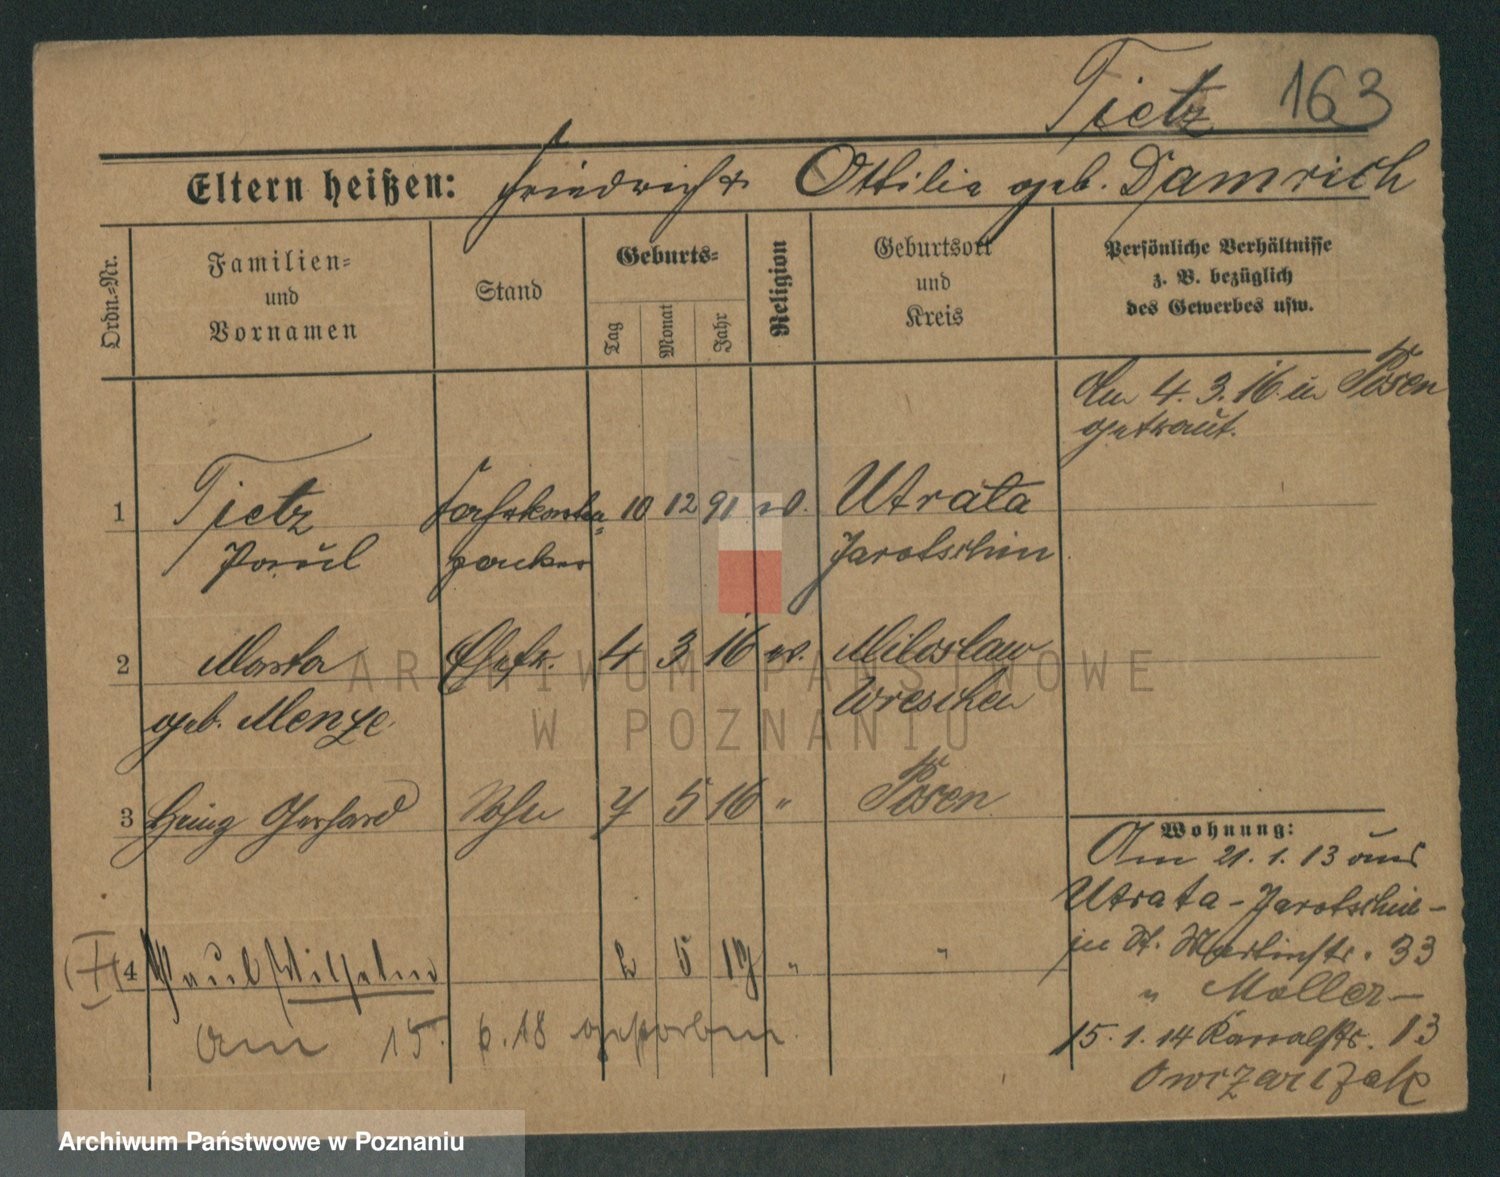 Tietz 163
Eltern heißen: Friedrich & Ottilie geb. Damrich
Ordn.-Nr.
Familien-
und
Vornamen
Stand
Geburts-
Tag
Monat
Jahr
Religion
Geburtsort
und
Kreis
Persönliche Verhältnisse
z. B. bezüglich
des Gewerbes usw.
Am 4. 3. 16 in Posen
getraut.
1 Tietz 10 12 91 ev. Utrata
Paul Jarotschin
2 Marta Ehefr. 4 3 16 ev. Miloslaw
geb. Menze Wreschen
3 Heinz Gerhard Sohn 7 5 16 " Posen
4 Paul Wilhelm 2 5 17 " "
am 15. 6. 18 gestorben.
Wohnung:
Am 21. 1. 13 aus
Utrata - Jarotschin -
in St. Martinstr. 33
" Moller -
15. 1. 14 Kanalstr. 13
Owczarczak
ARCHIWUM PAŃSTWOWE
W POZNANIU
Archiwum Państwowe w Poznaniu